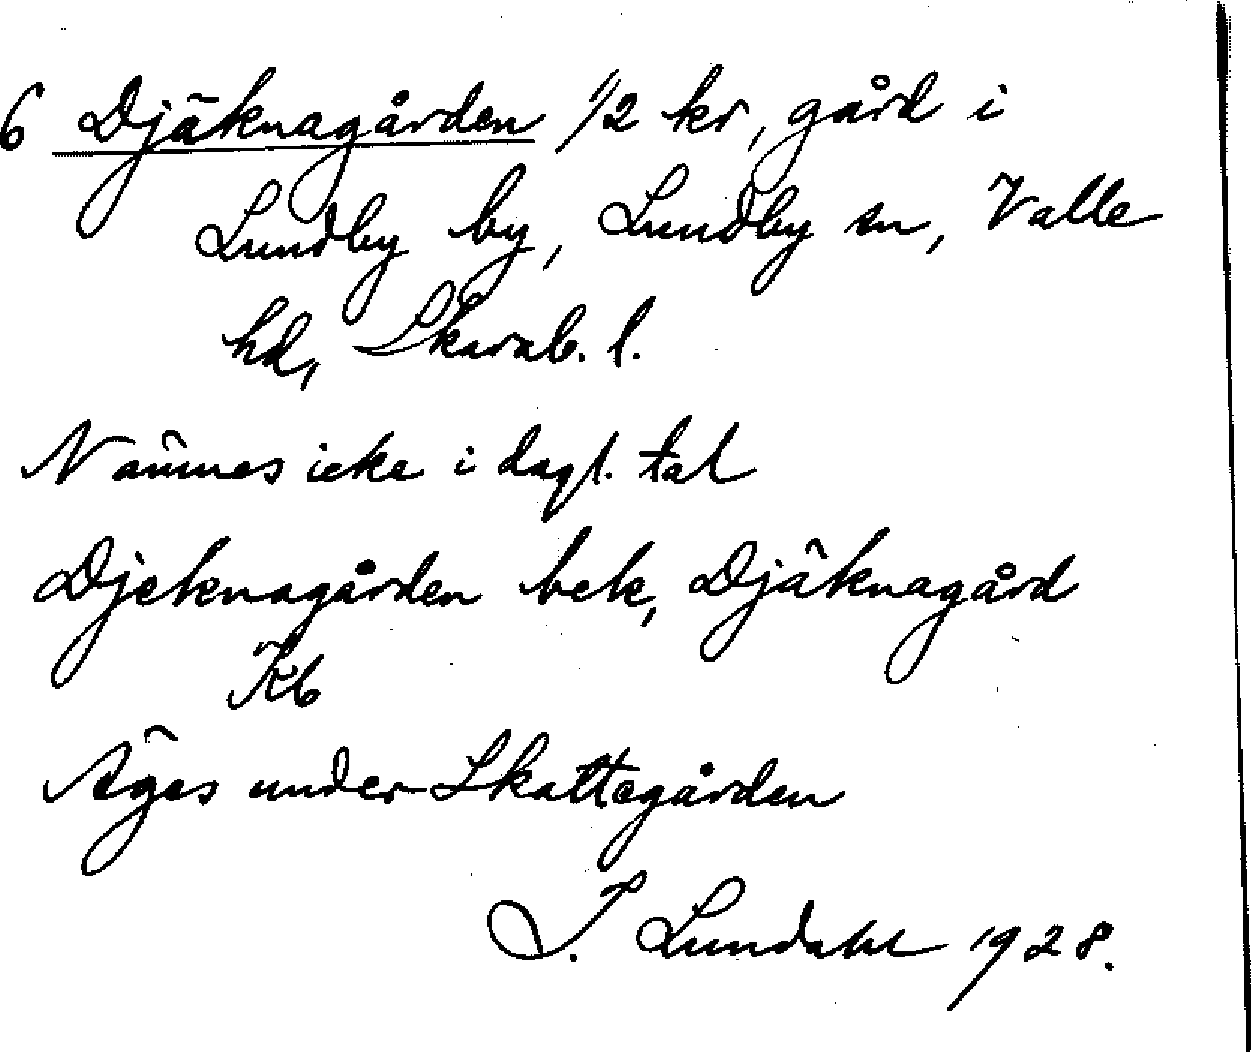 6 Djäknagården 1/2 kr, gård i
Lundby by, Lundby sn, Valle
hd, Skarab. l.
Nämnes icke i dagl. tal
Djeknagården bek, Djäknagård
Kb
Äges under Skattegården
I. Lundahl 1928.